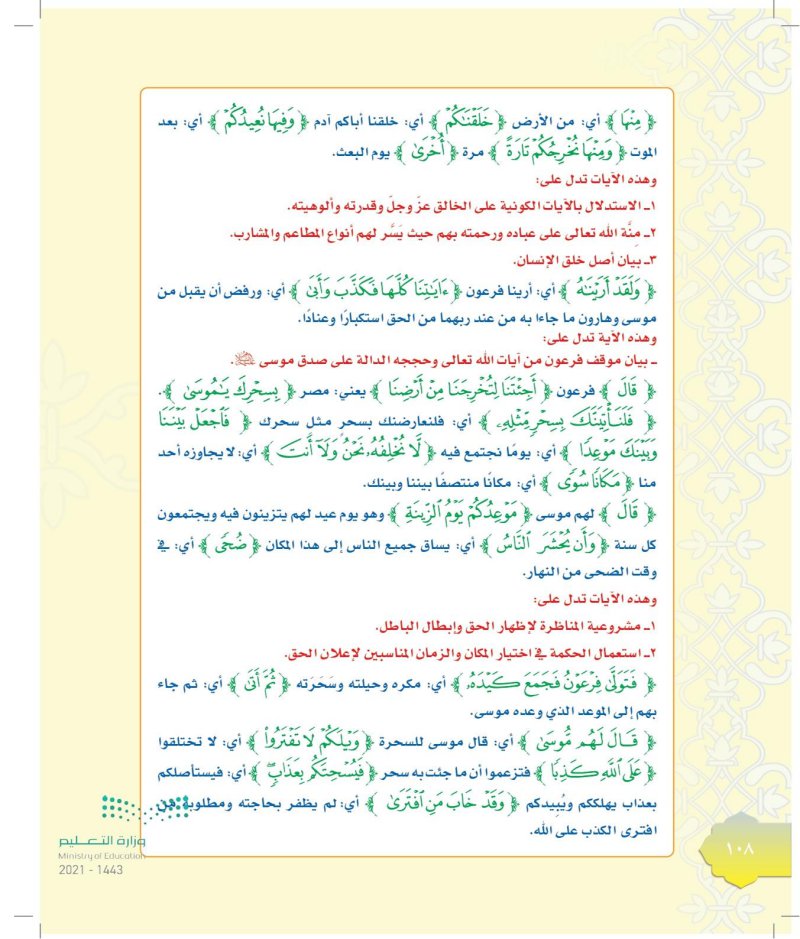 ﴿ مِنْهَا ﴾ أي: من الأرض ﴿ خَلَقْنَٰكُمْ ﴾ أي: خلقنا أباكم آدم ﴿ وَفِيهَا نُعِيدُكُمْ ﴾ أي: بعد
الموت ﴿ وَمِنْهَا نُخْرِجُكُمْ تَارَةً ﴾ مرة ﴿ أُخْرَىٰ ﴾ يوم البعث.
وهذه الآيات تدل على:
١ـ الاستدلال بالآيات الكونية على الخالق عزّ وجلّ وقدرته وألوهيته.
٢ـ مِنَّة الله تعالى على عباده ورحمته بهم حيث يَسَّر لهم أنواع المطاعم والمشارب.
٣ـ بيان أصل خلق الإنسان.
﴿ وَلَقَدْ أَرَيْنَٰهُ ﴾ أي: أرينا فرعون ﴿ ءَايَٰتِنَا كُلَّهَا فَكَذَّبَ وَأَبَىٰ ﴾ أي: ورفض أن يقبل من
موسى وهارون ما جاءا به من عند ربهما من الحق استكبارًا وعنادًا.
وهذه الآية تدل على:
ـ بيان موقف فرعون من آيات الله تعالى وحججه الدالة على صدق موسى ﷺ.
﴿ قَالَ ﴾ فرعون ﴿ أَجِئْتَنَا لِتُخْرِجَنَا مِنْ أَرْضِنَا ﴾ يعني: مصر ﴿ بِسِحْرِكَ يَٰمُوسَىٰ ﴾.
﴿ فَلَنَأْتِيَنَّكَ بِسِحْرٍ مِّثْلِهِۦ ﴾ أي: فلنعارضنك بسحرٍ مثل سحرك ﴿ فَٱجْعَلْ بَيْنَنَا
وَبَيْنَكَ مَوْعِدًا ﴾ أي: يومًا نجتمع فيه ﴿ لَّا نُخْلِفُهُۥ نَحْنُ وَلَآ أَنتَ ﴾ أي: لا يجاوزه أحد
منا ﴿ مَكَانًا سُوًى ﴾ أي: مكانًا منتصفًا بيننا وبينك.
﴿ قَالَ ﴾ لهم موسى ﴿ مَوْعِدُكُمْ يَوْمُ ٱلزِّينَةِ ﴾ وهو يوم عيد لهم يتزينون فيه ويجتمعون
كل سنة ﴿ وَأَن يُحْشَرَ ٱلنَّاسُ ﴾ أي: يساق جميع الناس إلى هذا المكان ﴿ ضُحًى ﴾ أي: في
وقت الضحى من النهار.
وهذه الآيات تدل على:
١ـ مشروعية المناظرة لإظهار الحق وإبطال الباطل.
٢ـ استعمال الحكمة في اختيار المكان والزمان المناسبين لإعلان الحق.
﴿ فَتَوَلَّىٰ فِرْعَوْنُ فَجَمَعَ كَيْدَهُۥ ﴾ أي: مكره وحيلته وسَحَرَته ﴿ ثُمَّ أَتَىٰ ﴾ أي: ثم جاء
بهم إلى الموعد الذي وعده موسى.
﴿ قَالَ لَهُم مُّوسَىٰ ﴾ أي: قال موسى للسحرة ﴿ وَيْلَكُمْ لَا تَفْتَرُوا۟ ﴾ أي: لا تختلقوا
﴿ عَلَى ٱللَّهِ كَذِبًا ﴾ فتزعموا أن ما جئت به سحر ﴿ فَيُسْحِتَكُم بِعَذَابٍ ۖ ﴾ أي: فيستأصلكم
بعذاب يهلككم ويُبيدكم ﴿ وَقَدْ خَابَ مَنِ ٱفْتَرَىٰ ﴾ أي: لم يظفر بحاجته ومطلوبه من
افترى الكذب على الله.
١٠٨
وزارة التعليم
Ministry of Education
2021 - 1443